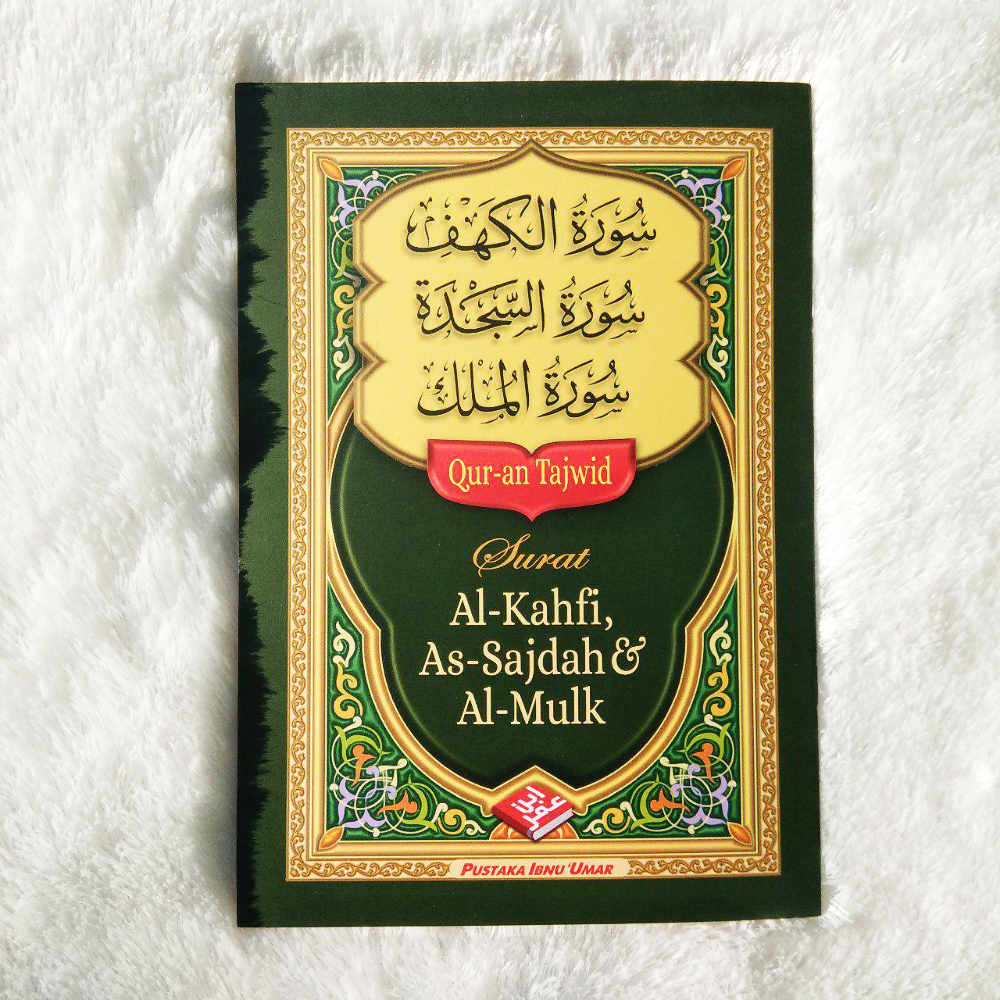 سُورَةُ الكَهْفِ
سُورَةُ السَّجْدَة
سُورَةُ المُلْك
Qur-an Tajwid
Surat
Al-Kahfi,
As-Sajdah &
Al-Mulk
ابن
عمر
PUSTAKA IBNU 'UMAR